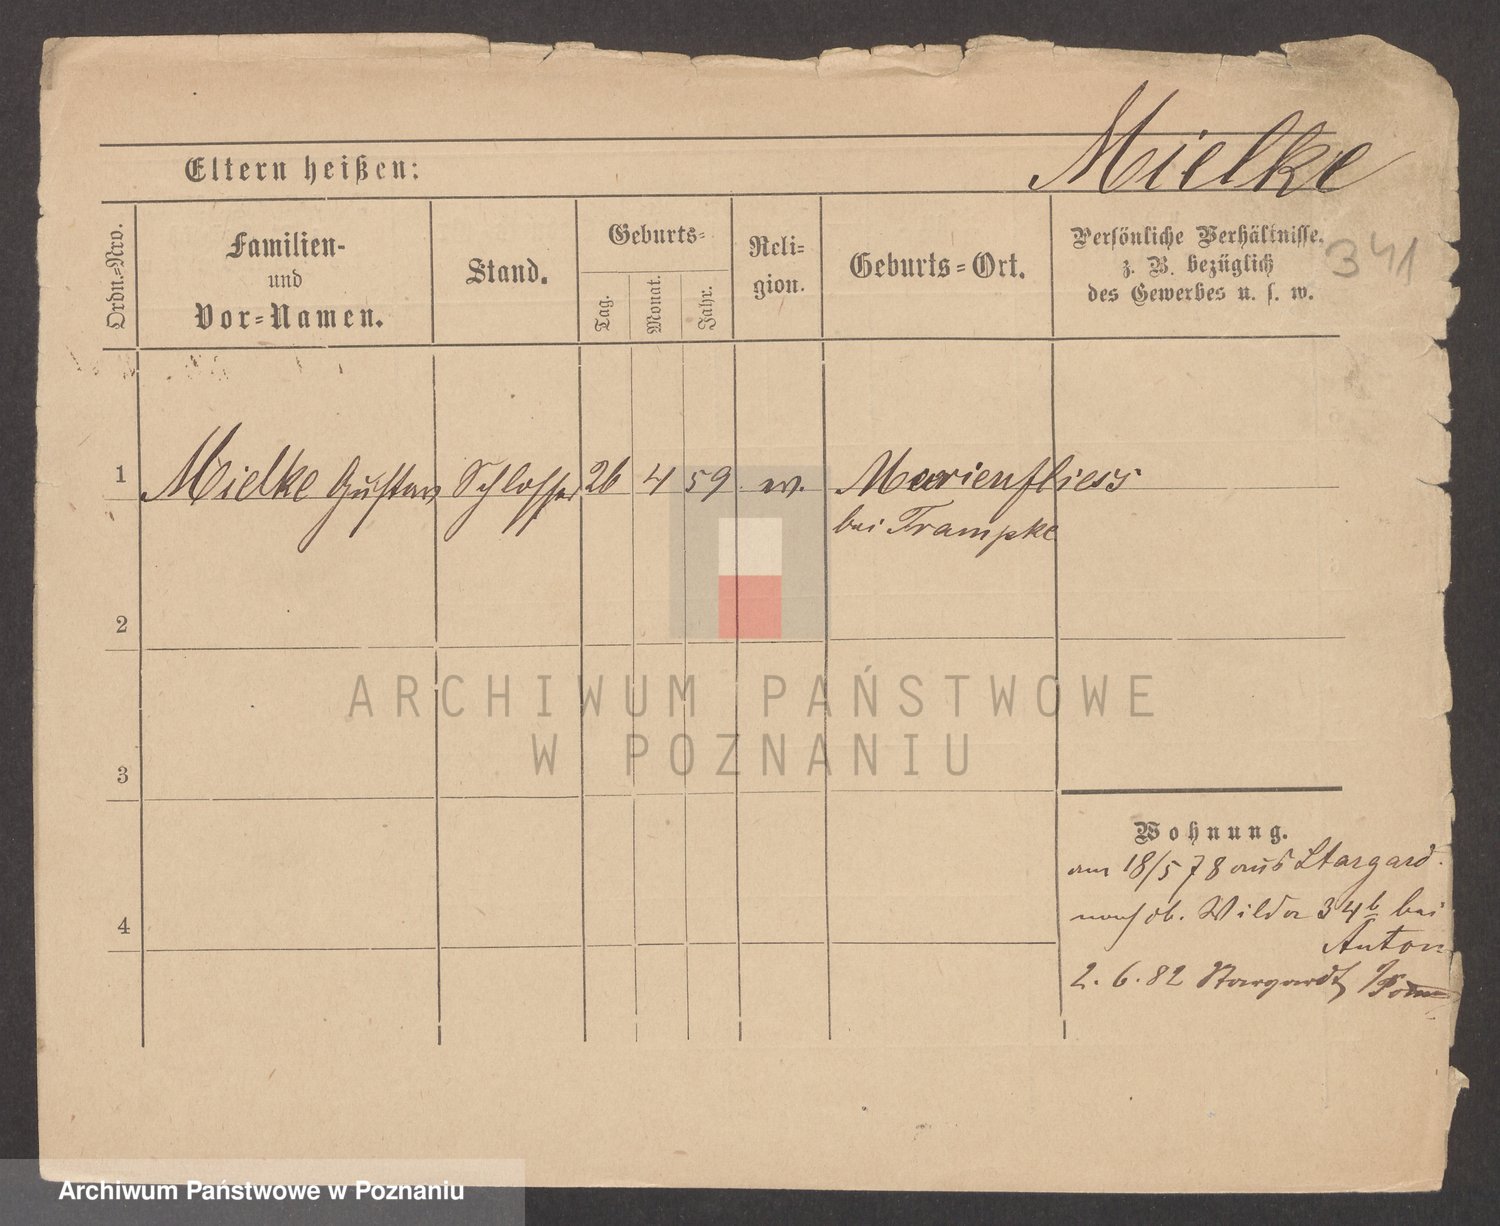 Mielke
Eltern heißen:
341
Ordn.=Nro.
Familien-
und
Vor=Namen.
Stand.
Geburts=
Tag.
Monat.
Jahr.
Reli=
gion.
Geburts=Ort.
Persönliche Verhältnisse.
z. B. bezüglich
des Gewerbes u. s. w.
1 Mielke Gustav Schlosser 26 4 59 ev. Marienfliess
bei Trampke
2
3
4
ARCHIWUM PAŃSTWOWE
W POZNANIU
Wohnung.
am 18/5 78 aus Stargard.
nach ob. Wilda 34b bei
Anton
2. 6. 82 Stargardt, Pom
Archiwum Państwowe w Poznaniu